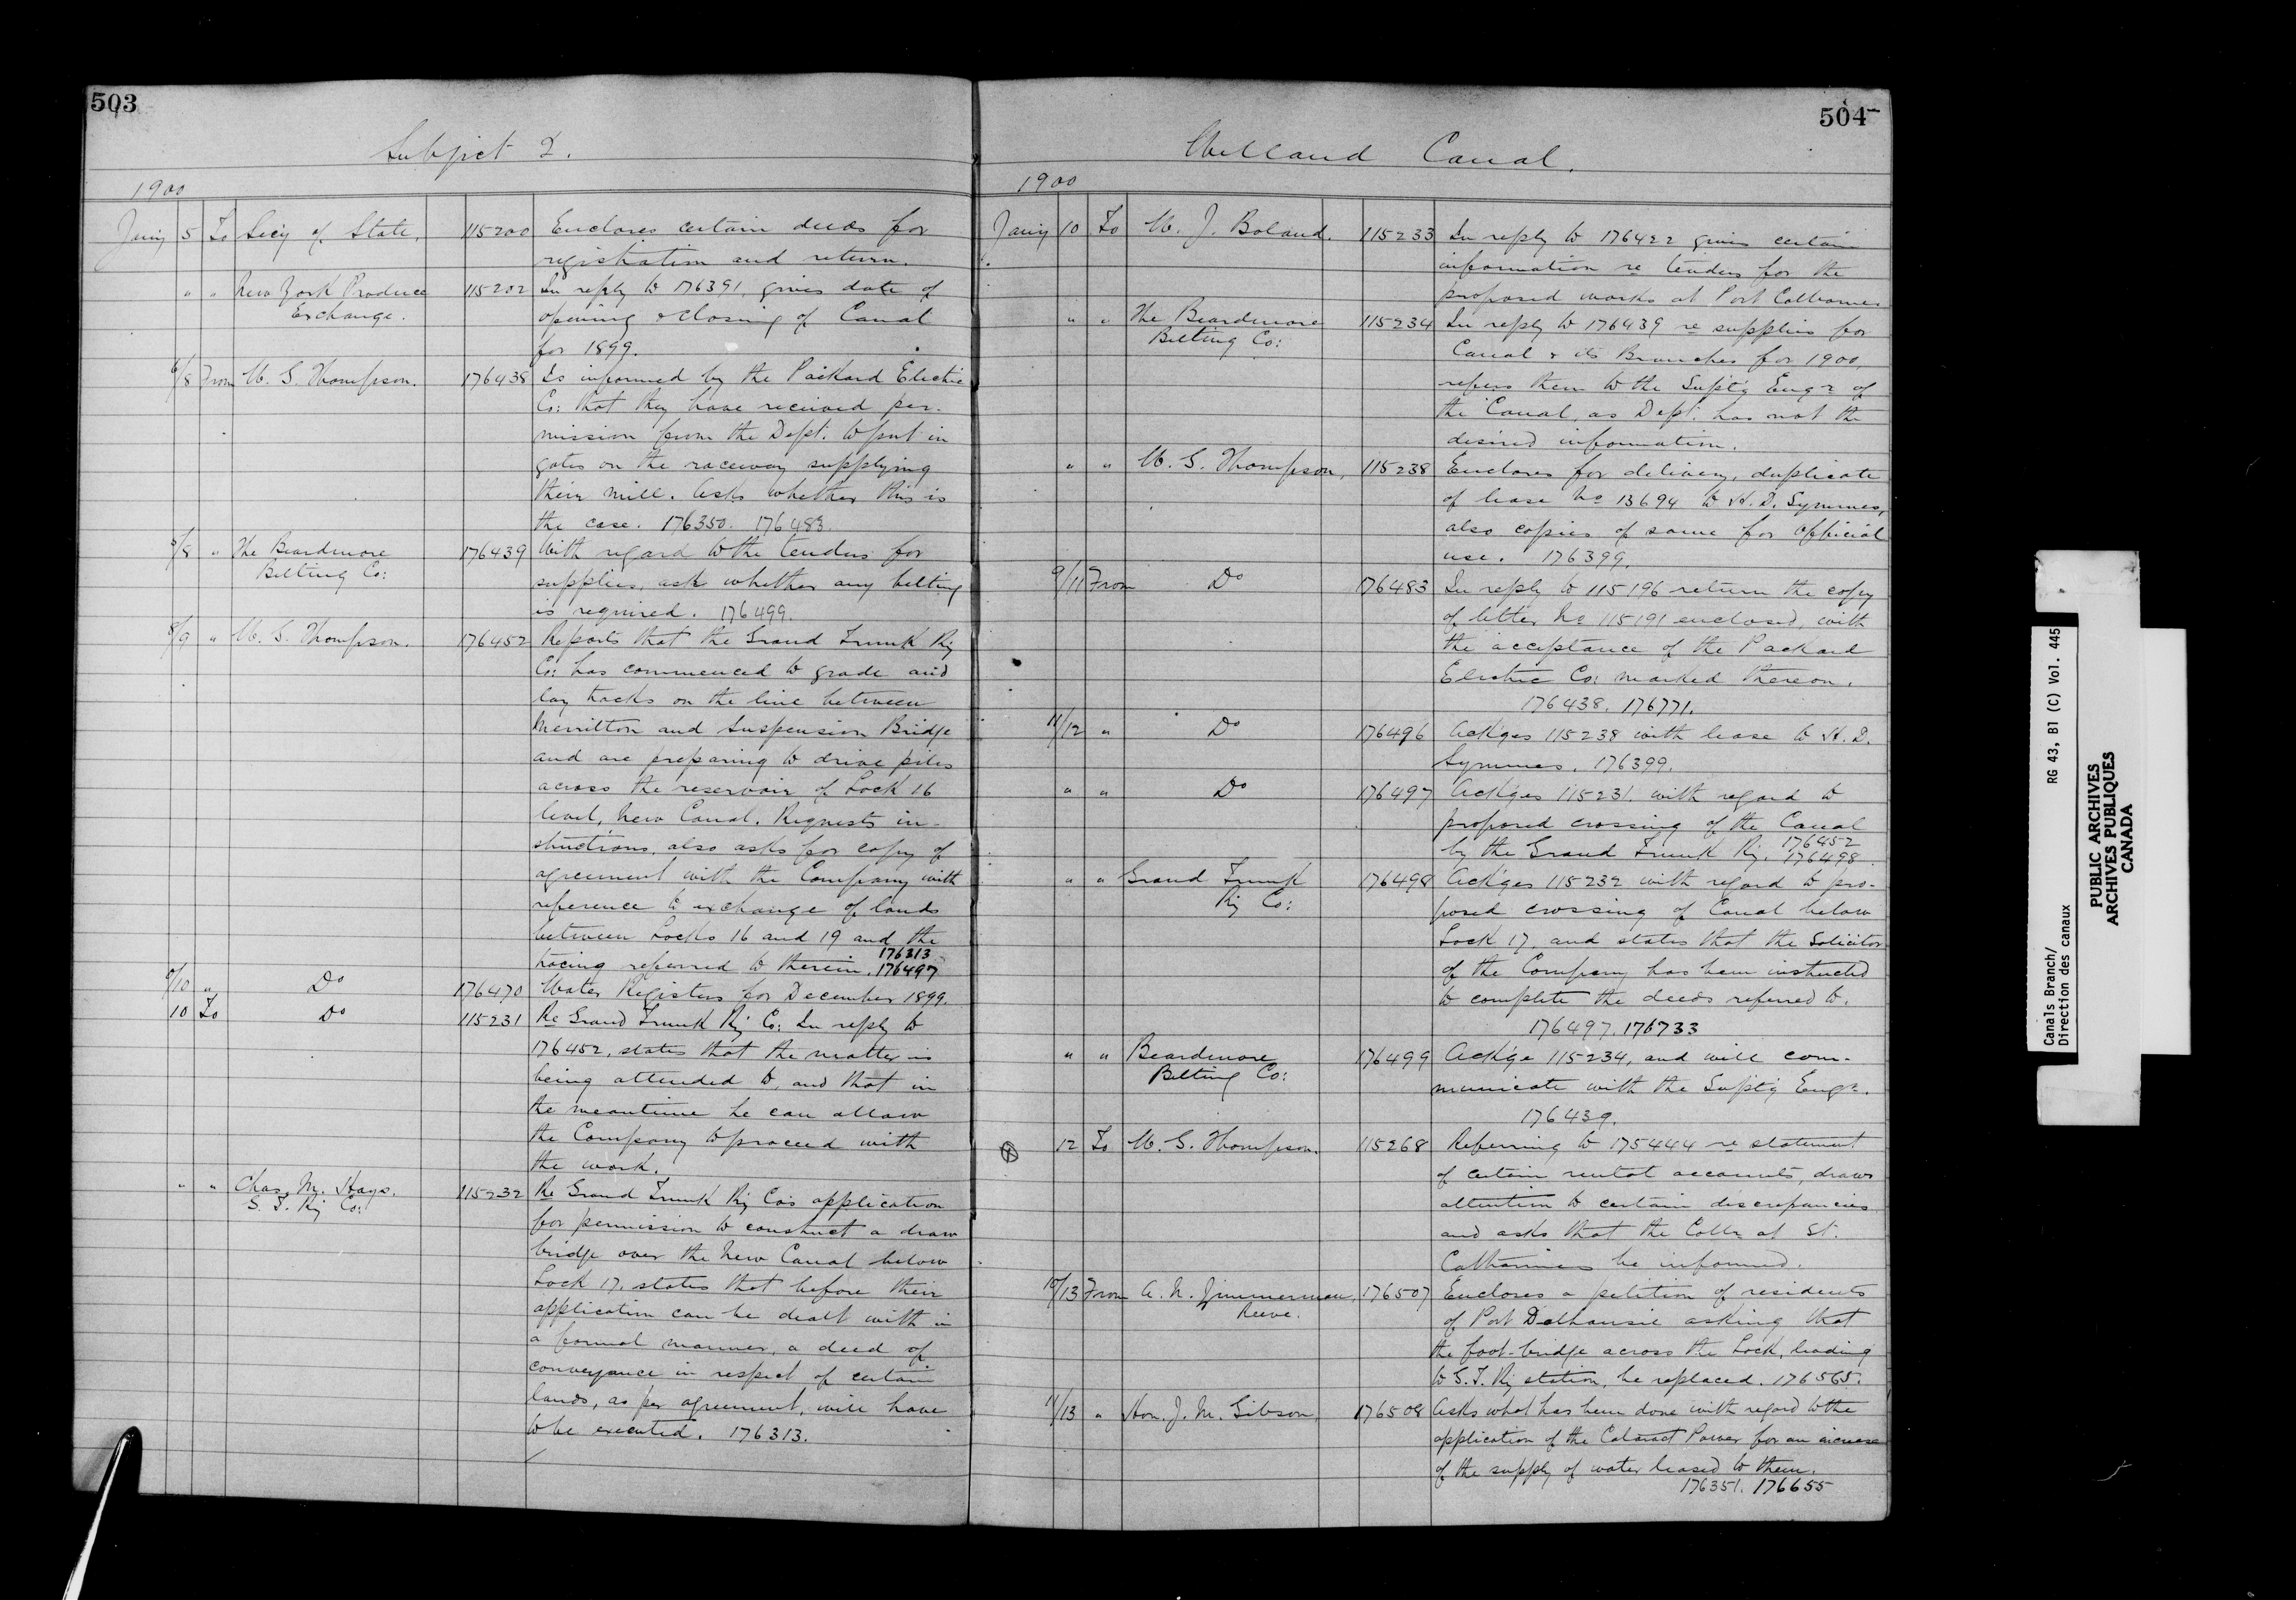 503
Subject 2.
1900
Jany 5 To Secy of State, 115200 Encloses certain deeds for
registration and return.
" " New York Produce 115202 In reply to 176391, gives date of
Exchange. opening & closing of Canal
for 1899.
6/8 From W. G. Thompson. 176438 Is informed by the Packard Electric
Co: that they have received per-
mission from the Dept. to put in
gates on the raceway supplying
their mill. Asks whether this is
the case. 176350. 176483.
5/8 " The Beardmore 176439 With regard to the tenders for
Belting Co: supplies, ask whether any belting
is required. 176499.
8/9 " W. G. Thompson. 176452 Reports that the Grand Trunk Ry
Co: has commenced to grade and
lay tracks on the line between
Merritton and Suspension Bridge
and are preparing to drive piles
across the reservoir of Lock 16
level, New Canal. Requests in-
structions, also asks for copy of
agreement with the Company with
reference to exchange of lands
between Locks 16 and 19 and the
176313
tracing referred to therein. 176497
9/10 " Do 176470 Water Registers for December 1899.
10 To Do 115231 Re Grand Trunk Ry Co: In reply to
176452, states that the matter is
being attended to, and that in
the meantime he can allow
the Company to proceed with
the work.
" " Chas. M. Hays. 115232 Re Grand Trunk Ry Co's application
G. T. Ry Co: for permission to construct a draw
bridge over the New Canal below
Lock 17, states that before their
application can be dealt with in
a formal manner, a deed of
conveyance in respect of certain
lands, as per agreement, will have
to be executed. 176313.
504
Welland Canal.
1900
Jany 10 To W. J. Boland. 115233 In reply to 176422 gives certain
information re tenders for the
proposed works at Port Colborne.
" " The Beardmore 115234 In reply to 176439 re supplies for
Belting Co: Canal & its Branches for 1900,
refers them to the Supt'g Engr of
the Canal, as Dept. has not the
desired information.
" " W. G. Thompson, 115238 Encloses for delivery, duplicate
of lease No 13694 to H. D. Symmes,
also copies of same for official
use. 176399.
9/11 From Do 176483 In reply to 115196 return the copy
of letter No 115191 enclosed, with
the acceptance of the Packard
Electric Co: marked thereon.
176438. 176771.
11/12 " Do 176496 Ack'ges 115238 with lease to H. D.
Symmes. 176399.
" " Do 176497 Ack'ges 115231, with regard to
proposed crossing of the Canal
176452
by the Grand Trunk Ry. 176498.
" " Grand Trunk 176498 Ack'ges 115232 with regard to pro-
Ry Co: posed crossing of Canal below
Lock 17, and states that the Solicitor
of the Company has been instructed
to complete the deeds referred to.
176497. 176733
" " Beardmore 176499 Ack'ge 115234, and will com-
Belting Co: municate with the Supt'g Engr.
176439.
12 To W. G. Thompson. 115268 Referring to 175444 re statement
of certain rental accounts, draws
attention to certain discrepancies
and asks that the Collr at St.
Catharines be informed.
10/13 From A. N. Zimmerman, 176507 Encloses a petition of residents
Reeve. of Port Dalhousie asking that
the foot-bridge across the Lock, leading
to G. T. Ry station, be replaced. 176565.
11/13 " Hon. J. M. Gibson, 176508 Asks what has been done with regard to the
application of the Cataract Power for an increase
of the supply of water leased to them.
176351. 176655
Canals Branch/
Direction des canaux
RG 43, B1 (C) Vol. 445
PUBLIC ARCHIVES
ARCHIVES PUBLIQUES
CANADA